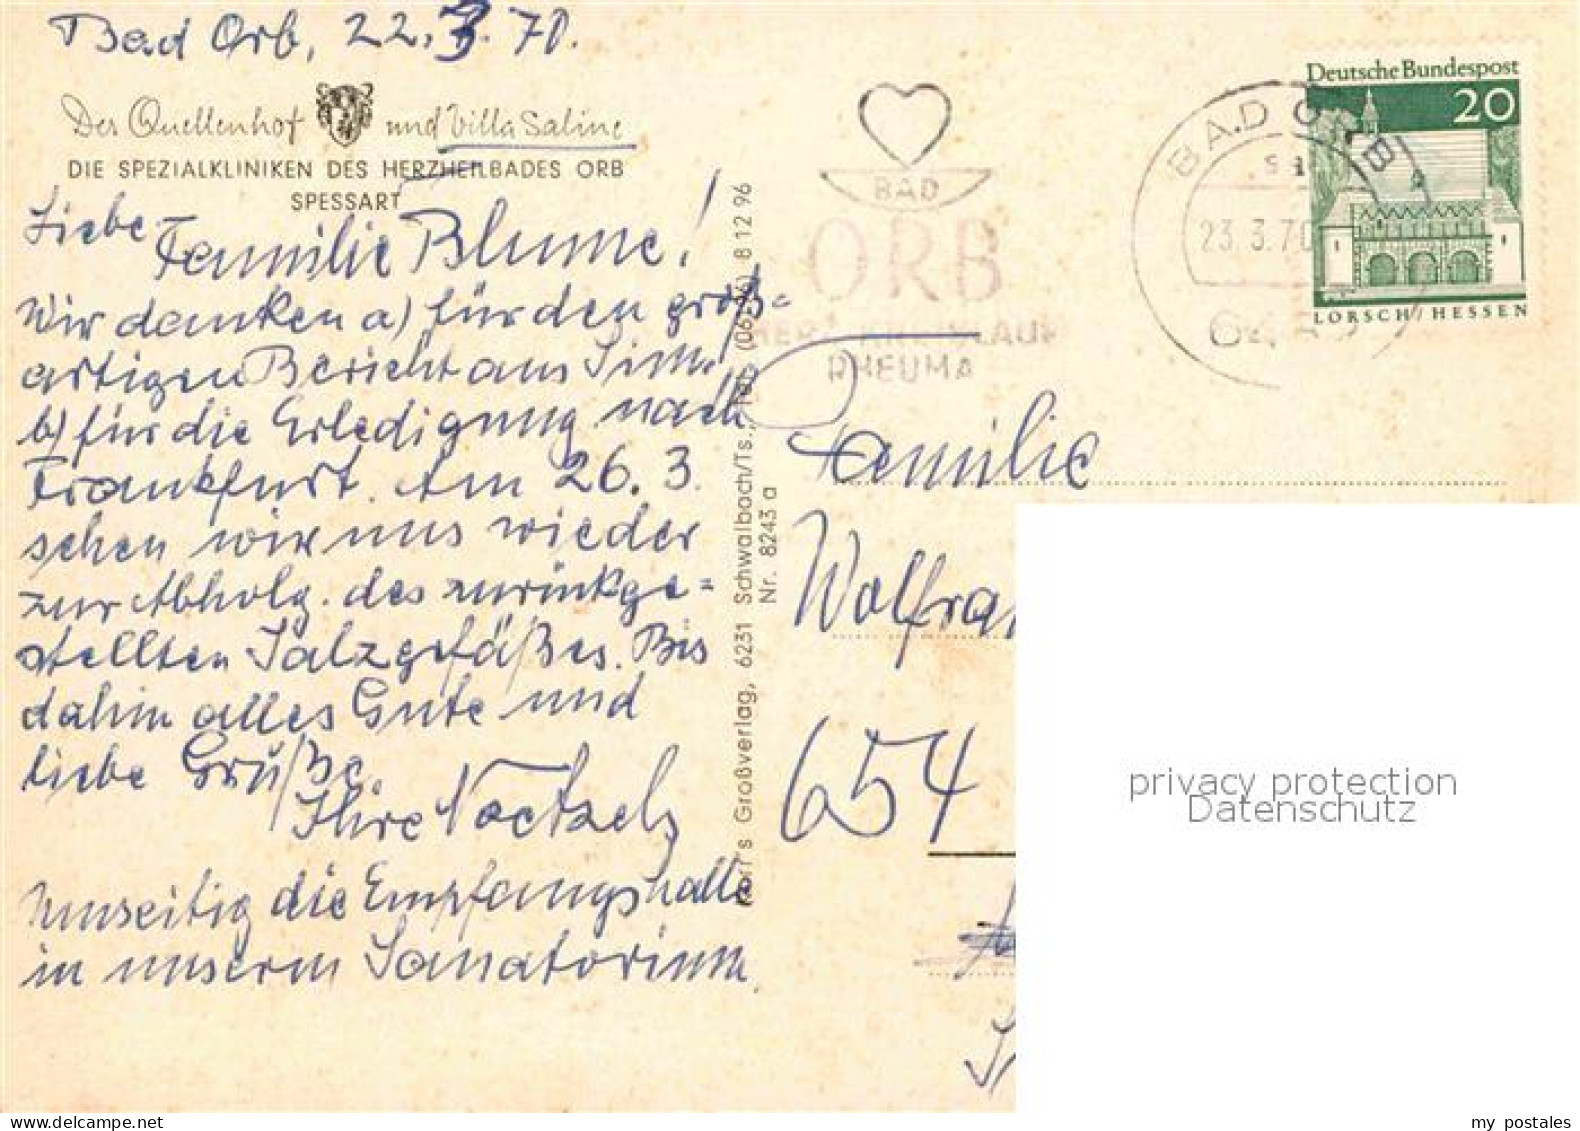 Bad Orb, 22.3.70.
Der Quellenhof und Villa Saline
DIE SPEZIALKLINIKEN DES HERZHEILBADES ORB
SPESSART
Liebe Familie Blume!
Wir danken a) für den groß=
artigen Bericht aus Sim.,
b) für die Erledigung nach
Frankfurt. Am 26.3.
sehen wir uns wieder
zur Abholg. des zurückge=
stellten Salzgefäßes. Bis
dahin alles Gute und
liebe Grüße.
Ihre
Umseitig die Empfangshalle
in unserm Sanatorium.
Großverlag, 6231 Schwalbach/Ts., 8 12 96
Nr. 8243 a
BAD
ORB
RHEUMA
BAD ORB
23.3.70
Deutsche Bundespost
20
LORSCH/HESSEN
Familie
Wolfra
654
privacy protection
Datenschutz
my postales